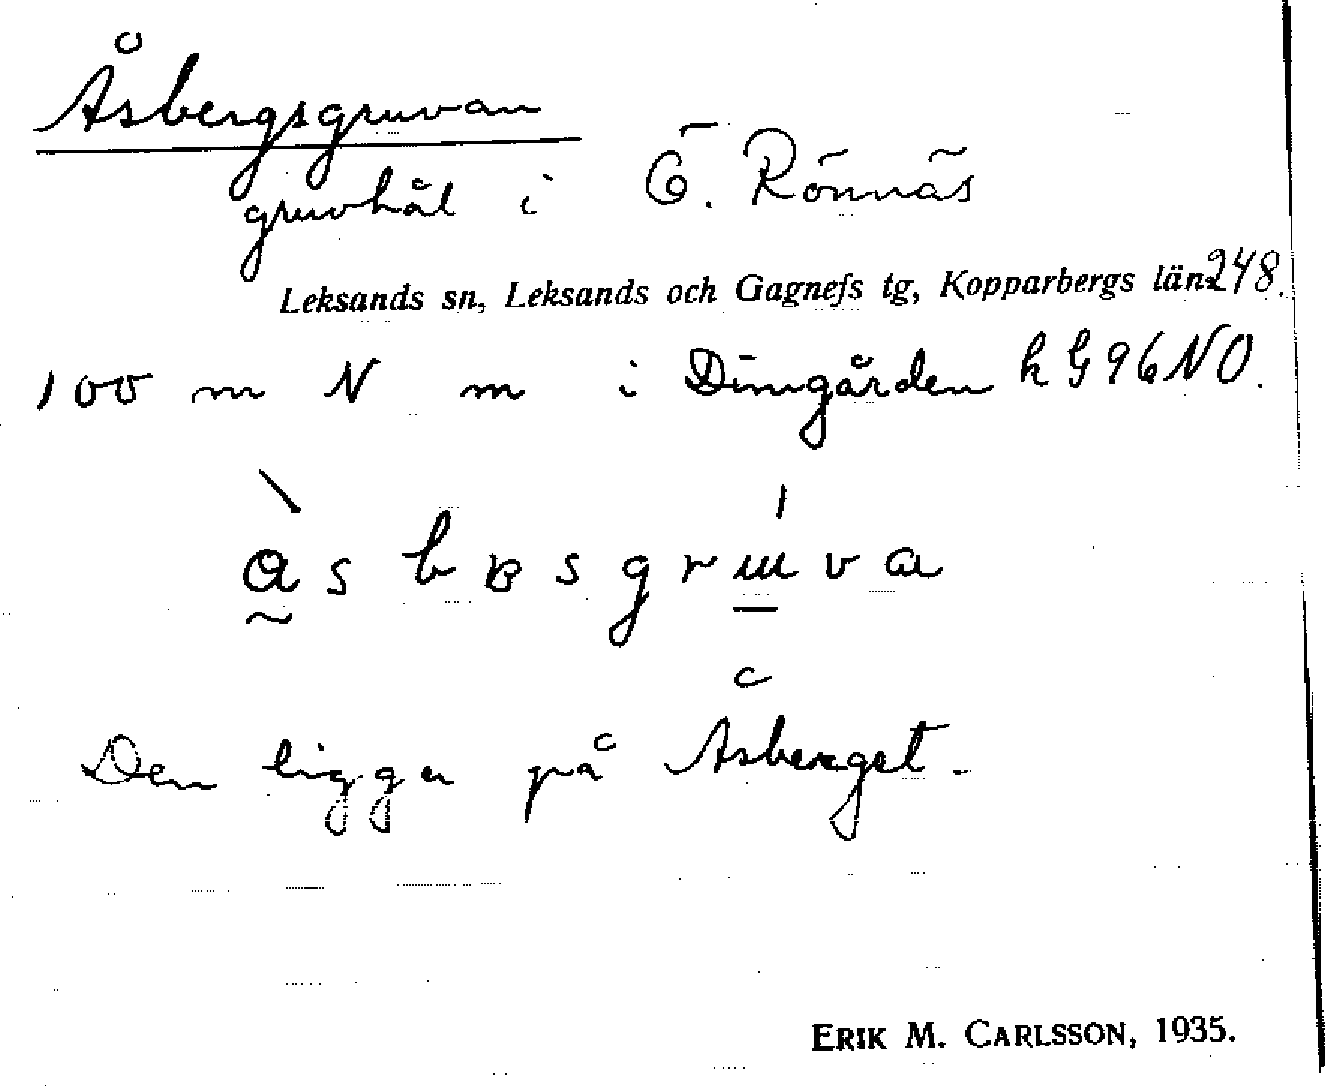 Åsbergsgruvan
gruvhål i Ö. Rönnäs
Leksands sn, Leksands och Gagnefs tg, Kopparbergs län 248.
100 m N m i Dimgården h G 96 NO.
åsbɞsgrɯva
Den ligger på Åsberget.
ERIK M. CARLSSON, 1935.